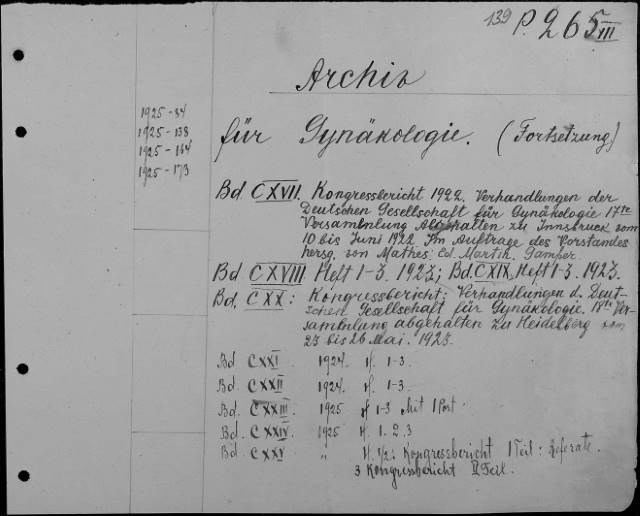 139 P. 265 III
Archiv
1925-84
1925-138
1925-154
1925-173
für Gynäkologie. (Fortsetzung)
Bd CXVII. Kongressbericht 1922. Verhandlungen der
Deutschen Gesellschaft für Gynäkologie 17te
Versammlung Abgehalten zu Innsbruck vom
10 bis Juni 1922 Im Auftrage des Vorstandes
hersg. von Mathes. Ed. Martin.
Bd CXVIII Heft 1-3. 1923; Bd. CXIX. Heft 1-3. 1923.
Bd. CXX: Kongressbericht: Verhandlungen d. Deut-
schen Gesellschaft für Gynäkologie. 18te Ver-
sammlung abgehalten zu Heidelberg vom
23 bis 26 Mai. 1923.
Bd CXXI 1924. H. 1-3.
Bd CXXII 1924. H. 1-3.
Bd. CXXIII 1925 H 1-3 Mit 1 Port.
Bd. CXXIV. 1925 H. 1. 2. 3
Bd CXXV " H. 1/2; Kongressbericht 1 Teil: Referate.
3 Kongressbericht II Teil.